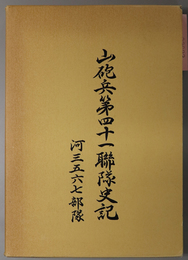 山砲兵第四十一聯隊史記
河三五六七部隊